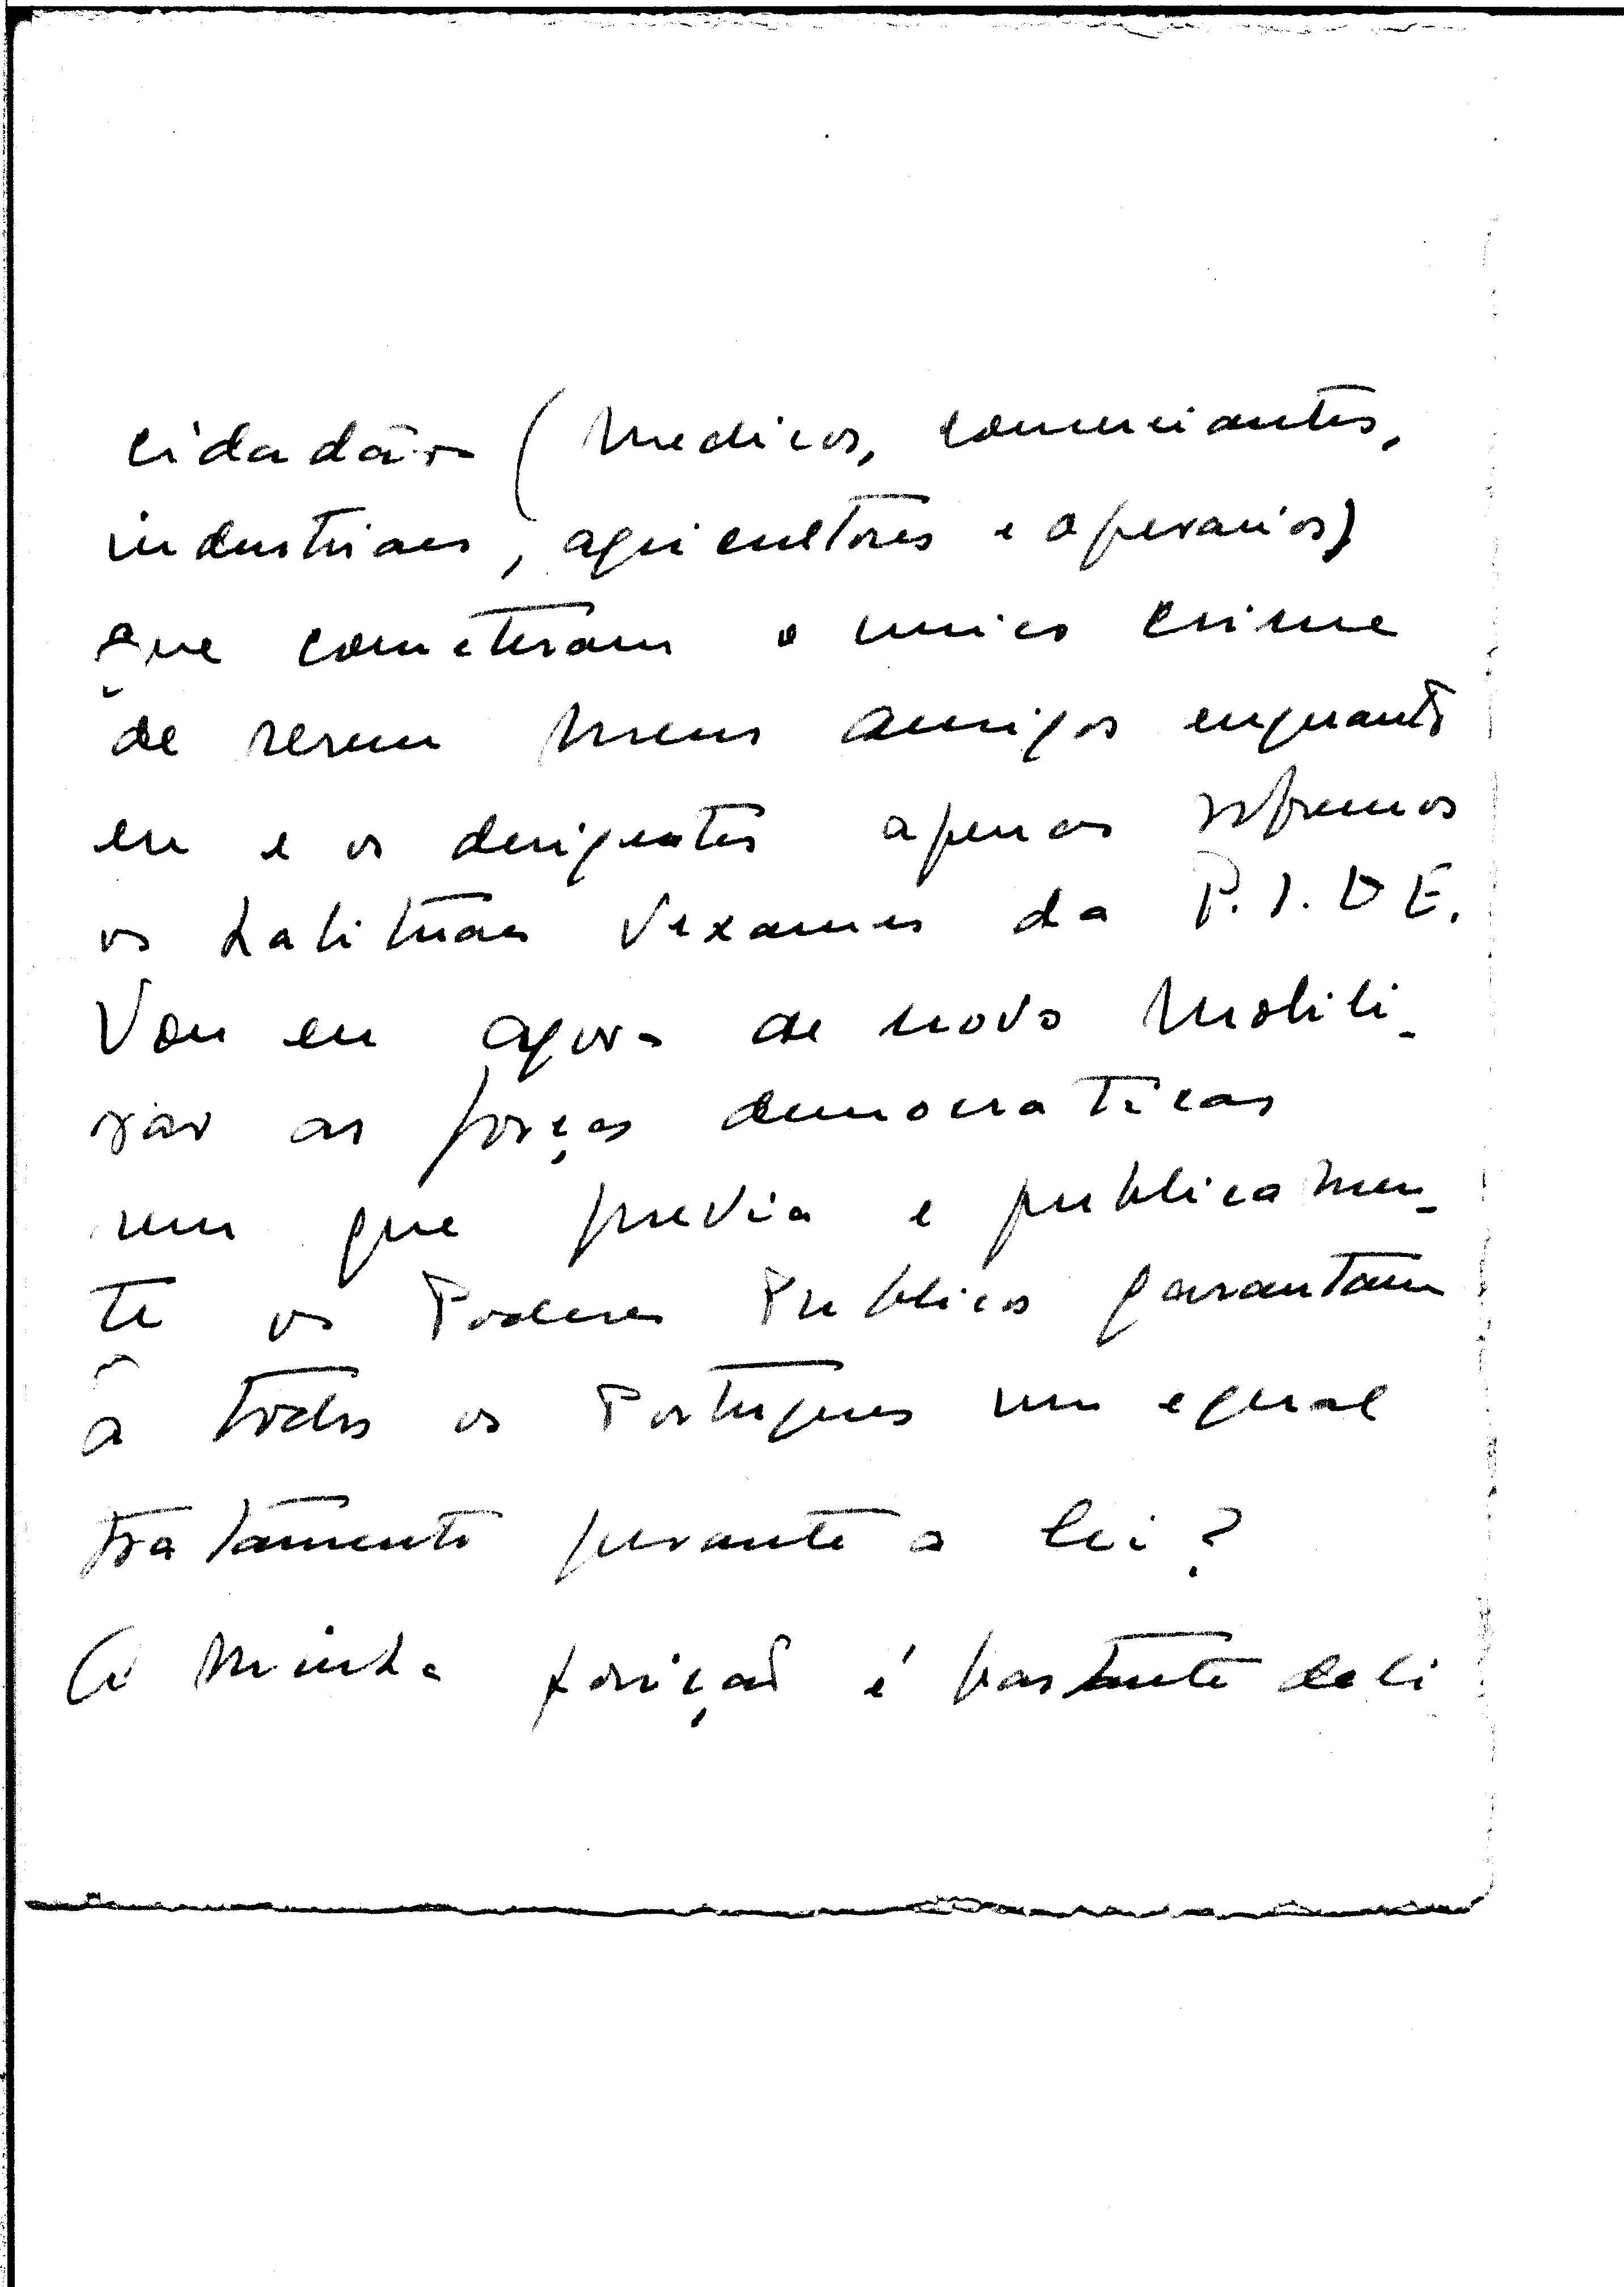 cidadãos (medicos, comerciantes,
industriaes, agricultores e operarios)
que cometeram o unico crime
de serem meus amigos enquanto
eu e os derigentes apenas sofremos
os habituaes vexames da P.I.D.E.
Vou eu agora de novo mobili-
zar as forças democraticas
sem que previa e publicamen-
te os Poderes Publicos garantam
a todos os Portugues um egual
tratamento perante a lei?
A minha posição é bastante deli